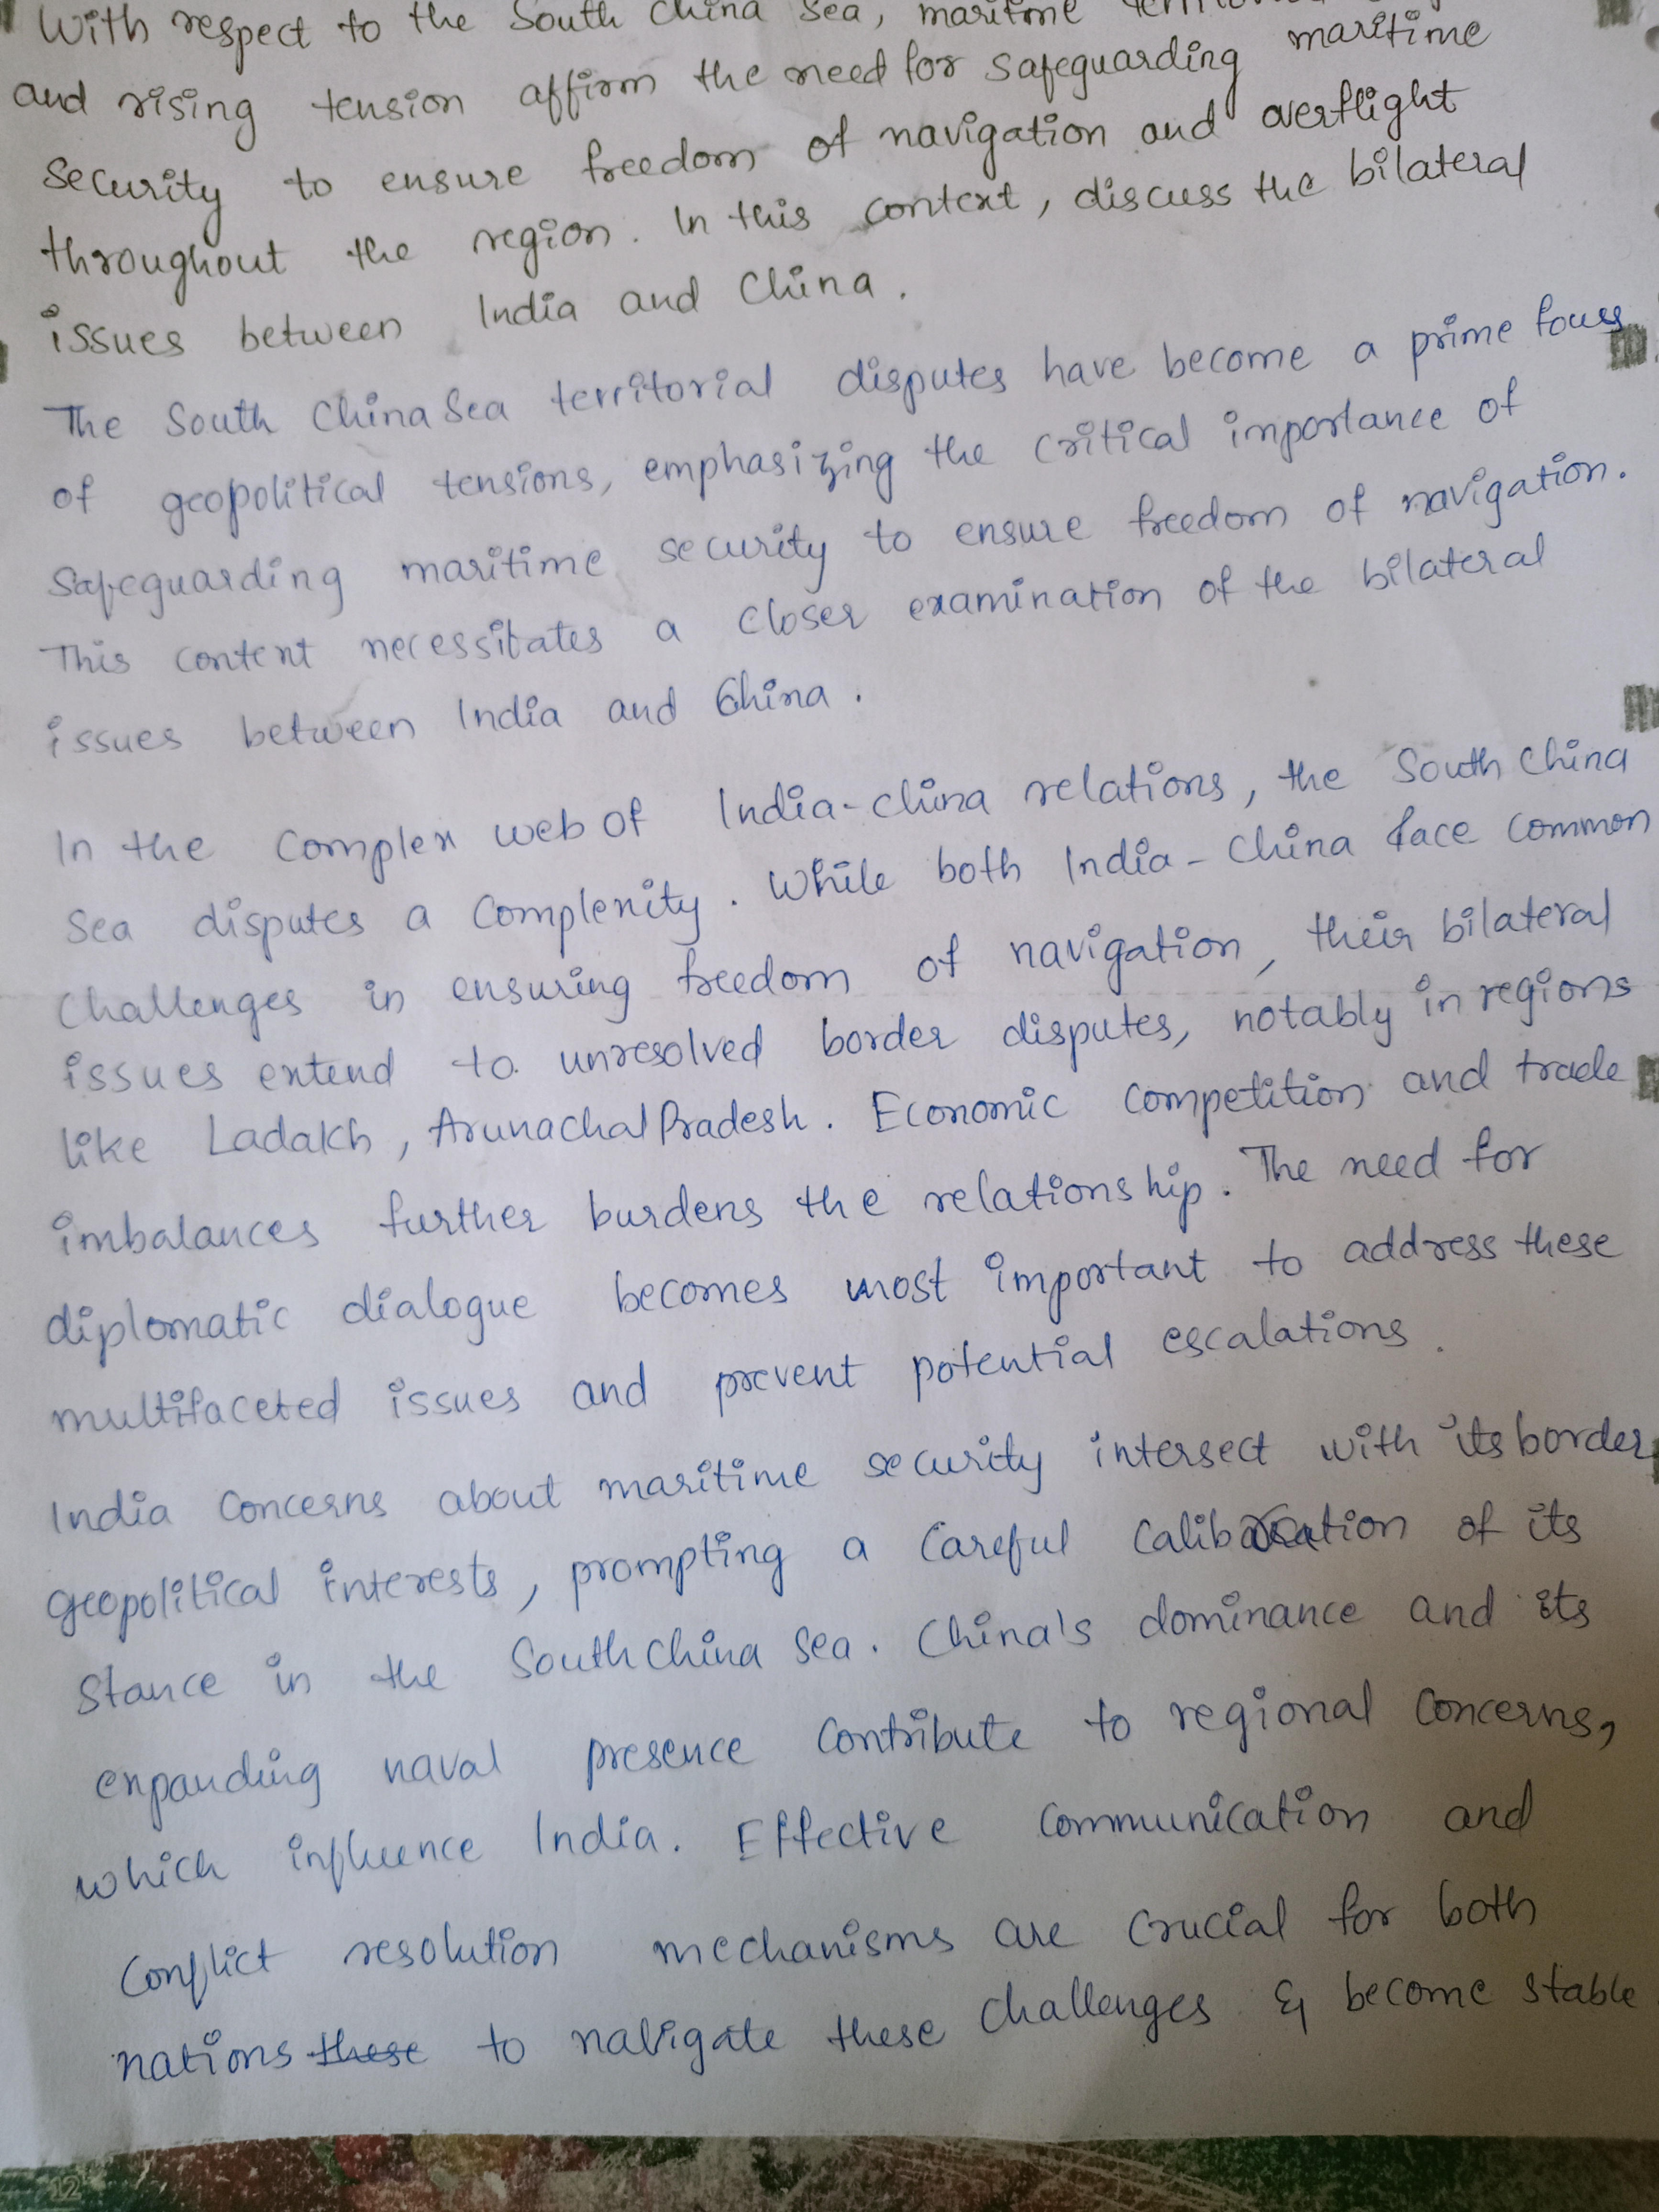 With respect to the South China Sea, maritime
and rising tension affirm the need for safeguarding maritime
security to ensure freedom of navigation and overflight
throughout the region. In this context, discuss the bilateral
issues between India and China.
The South China Sea territorial disputes have become a prime focus
of geopolitical tensions, emphasizing the critical importance of
Safeguarding maritime security to ensure freedom of navigation.
This context necessitates a closer examination of the bilateral
issues between India and China.
In the complex web of India-china relations, the South China
Sea disputes a complexity. While both India-China face common
challenges in ensuring freedom of navigation, their bilateral
issues extend to unresolved border disputes, notably in regions
like Ladakh, Arunachal Pradesh. Economic competition and trade
imbalances further burdens the relationship. The need for
diplomatic dialogue becomes most important to address these
multifaceted issues and prevent potential escalations.
India concerns about maritime security intersect with its border
geopolitical interests, prompting a careful calibaration of its
Stance in the South China Sea. China's dominance and its
expanding naval presence contribute to regional concerns,
which influence India. Effective communication and
conflict resolution mechanisms are crucial for both
nations these to navigate these challenges & become stable
12